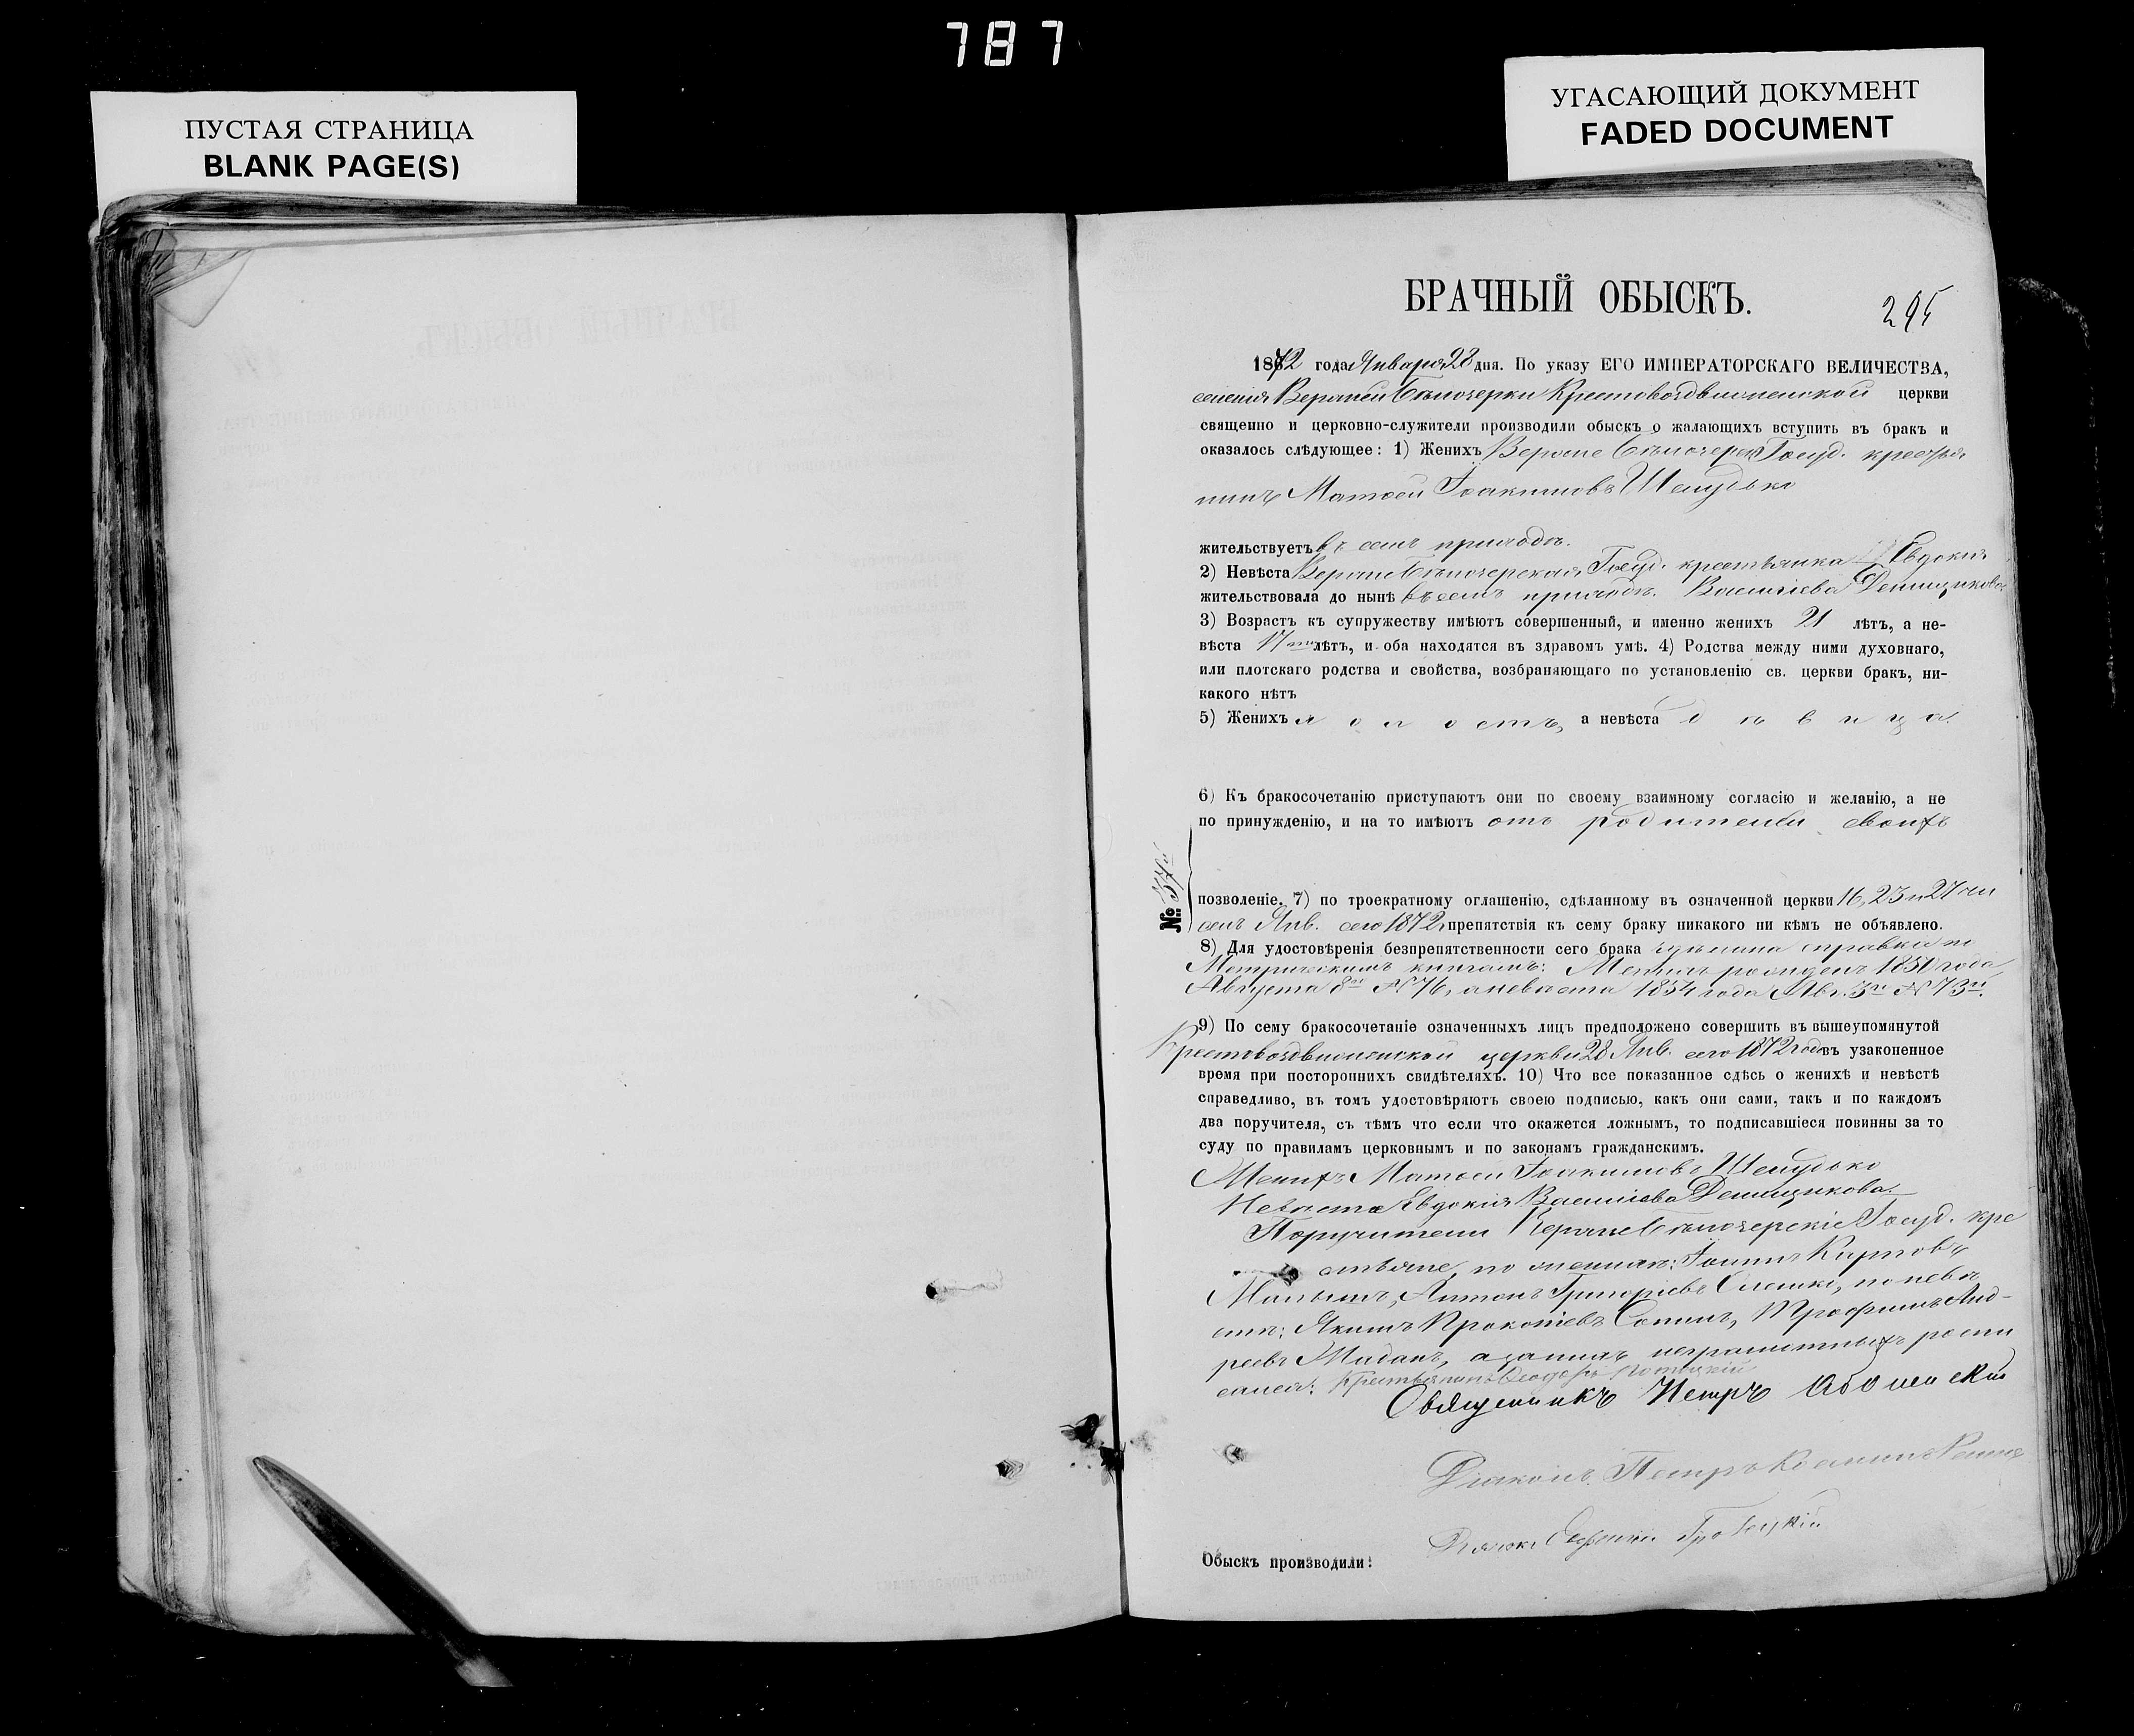 787
ПУСТАЯ СТРАНИЦА
BLANK PAGE(S)
УГАСАЮЩИЙ ДОКУМЕНТ
FADED DOCUMENT
БРАЧНЫЙ ОБЫСКЪ.
295
1872 года Января 28 дня. По указу ЕГО ИМПЕРАТОРСКАГО ВЕЛИЧЕСТВА,
селенія Верхней Бѣлозерки Крестовоздвиженской церкви
священно и церковно-служители производили обыскъ о жалающихъ вступить въ бракъ и
оказалось слѣдующее: 1) Женихъ Верхне Бѣлозерск Госуд. крестья
нинъ Матѳей Іоакимовъ Шелудько
жительствуетъ въ семъ приходѣ.
2) Невѣста Верхне Бѣлозерская Госуд. крестьянка Евдокія
жительствовала до нынѣ въ семъ приходѣ. Васильева
3) Возрастъ къ супружеству имѣютъ совершенный, и именно женихъ 21 лѣтъ, а не-
вѣста 17 лѣтъ, и оба находятся въ здравомъ умѣ. 4) Родства между ними духовнаго,
или плотскаго родства и свойства, возбраняющаго по установленію св. церкви бракъ, ни-
какого нѣтъ
5) Женихъ холостъ, а невѣста дѣвица.
6) Къ бракосочетанію приступаютъ они по своему взаимному согласію и желанію, а не
по принужденію, и на то имѣютъ отъ родителей своихъ
№: 37й
позволеніе. 7) по троекратному оглашенію, сдѣланному въ означенной церкви 16, 23 и 27
Янв. сего 1872, препятствія къ сему браку никакого ни кѣмъ не объявлено.
8) Для удостовѣренія безпрепятственности сего брака сдѣлана справка по
Метрическимъ книгамъ: Женихъ рожденъ 1850 года
Августа 8го № 76, а невѣста 1854 года Авг. 3го № 73й.
9) По сему бракосочетаніе означенныхъ лицъ предположено совершить въ вышеупомянутой
Крестовоздвиженской церкви 28 Янв. сего 1872 года въ узаконенное
время при постороннихъ свидѣтеляхъ. 10) Что все показанное сдѣсь о женихѣ и невѣстѣ
справедливо, въ томъ удостовѣряютъ своею подписью, какъ они сами, такъ и по каждомъ
два поручителя, съ тѣмъ что если что окажется ложнымъ, то подписавшіеся повинны за то
суду по правиламъ церковнымъ и по законамъ гражданскимъ.
Женихъ Матѳей Іоакимовъ Шелудько
Невѣста Евдокія Васильева
Поручители Верхне Бѣлозерскіе Госуд. кре
стьяне, по женихѣ: Іоаннъ Карповъ
Антонъ Григорьевъ по невѣ
стѣ: Якимъ Прокопіевъ Трофимъ Анд-
реевъ а за нихъ неграмотныхъ роспи
сался: Крестьянинъ Ѳеодоръ
Священникъ Петръ
Діаконъ Петръ
Обыскъ производили: